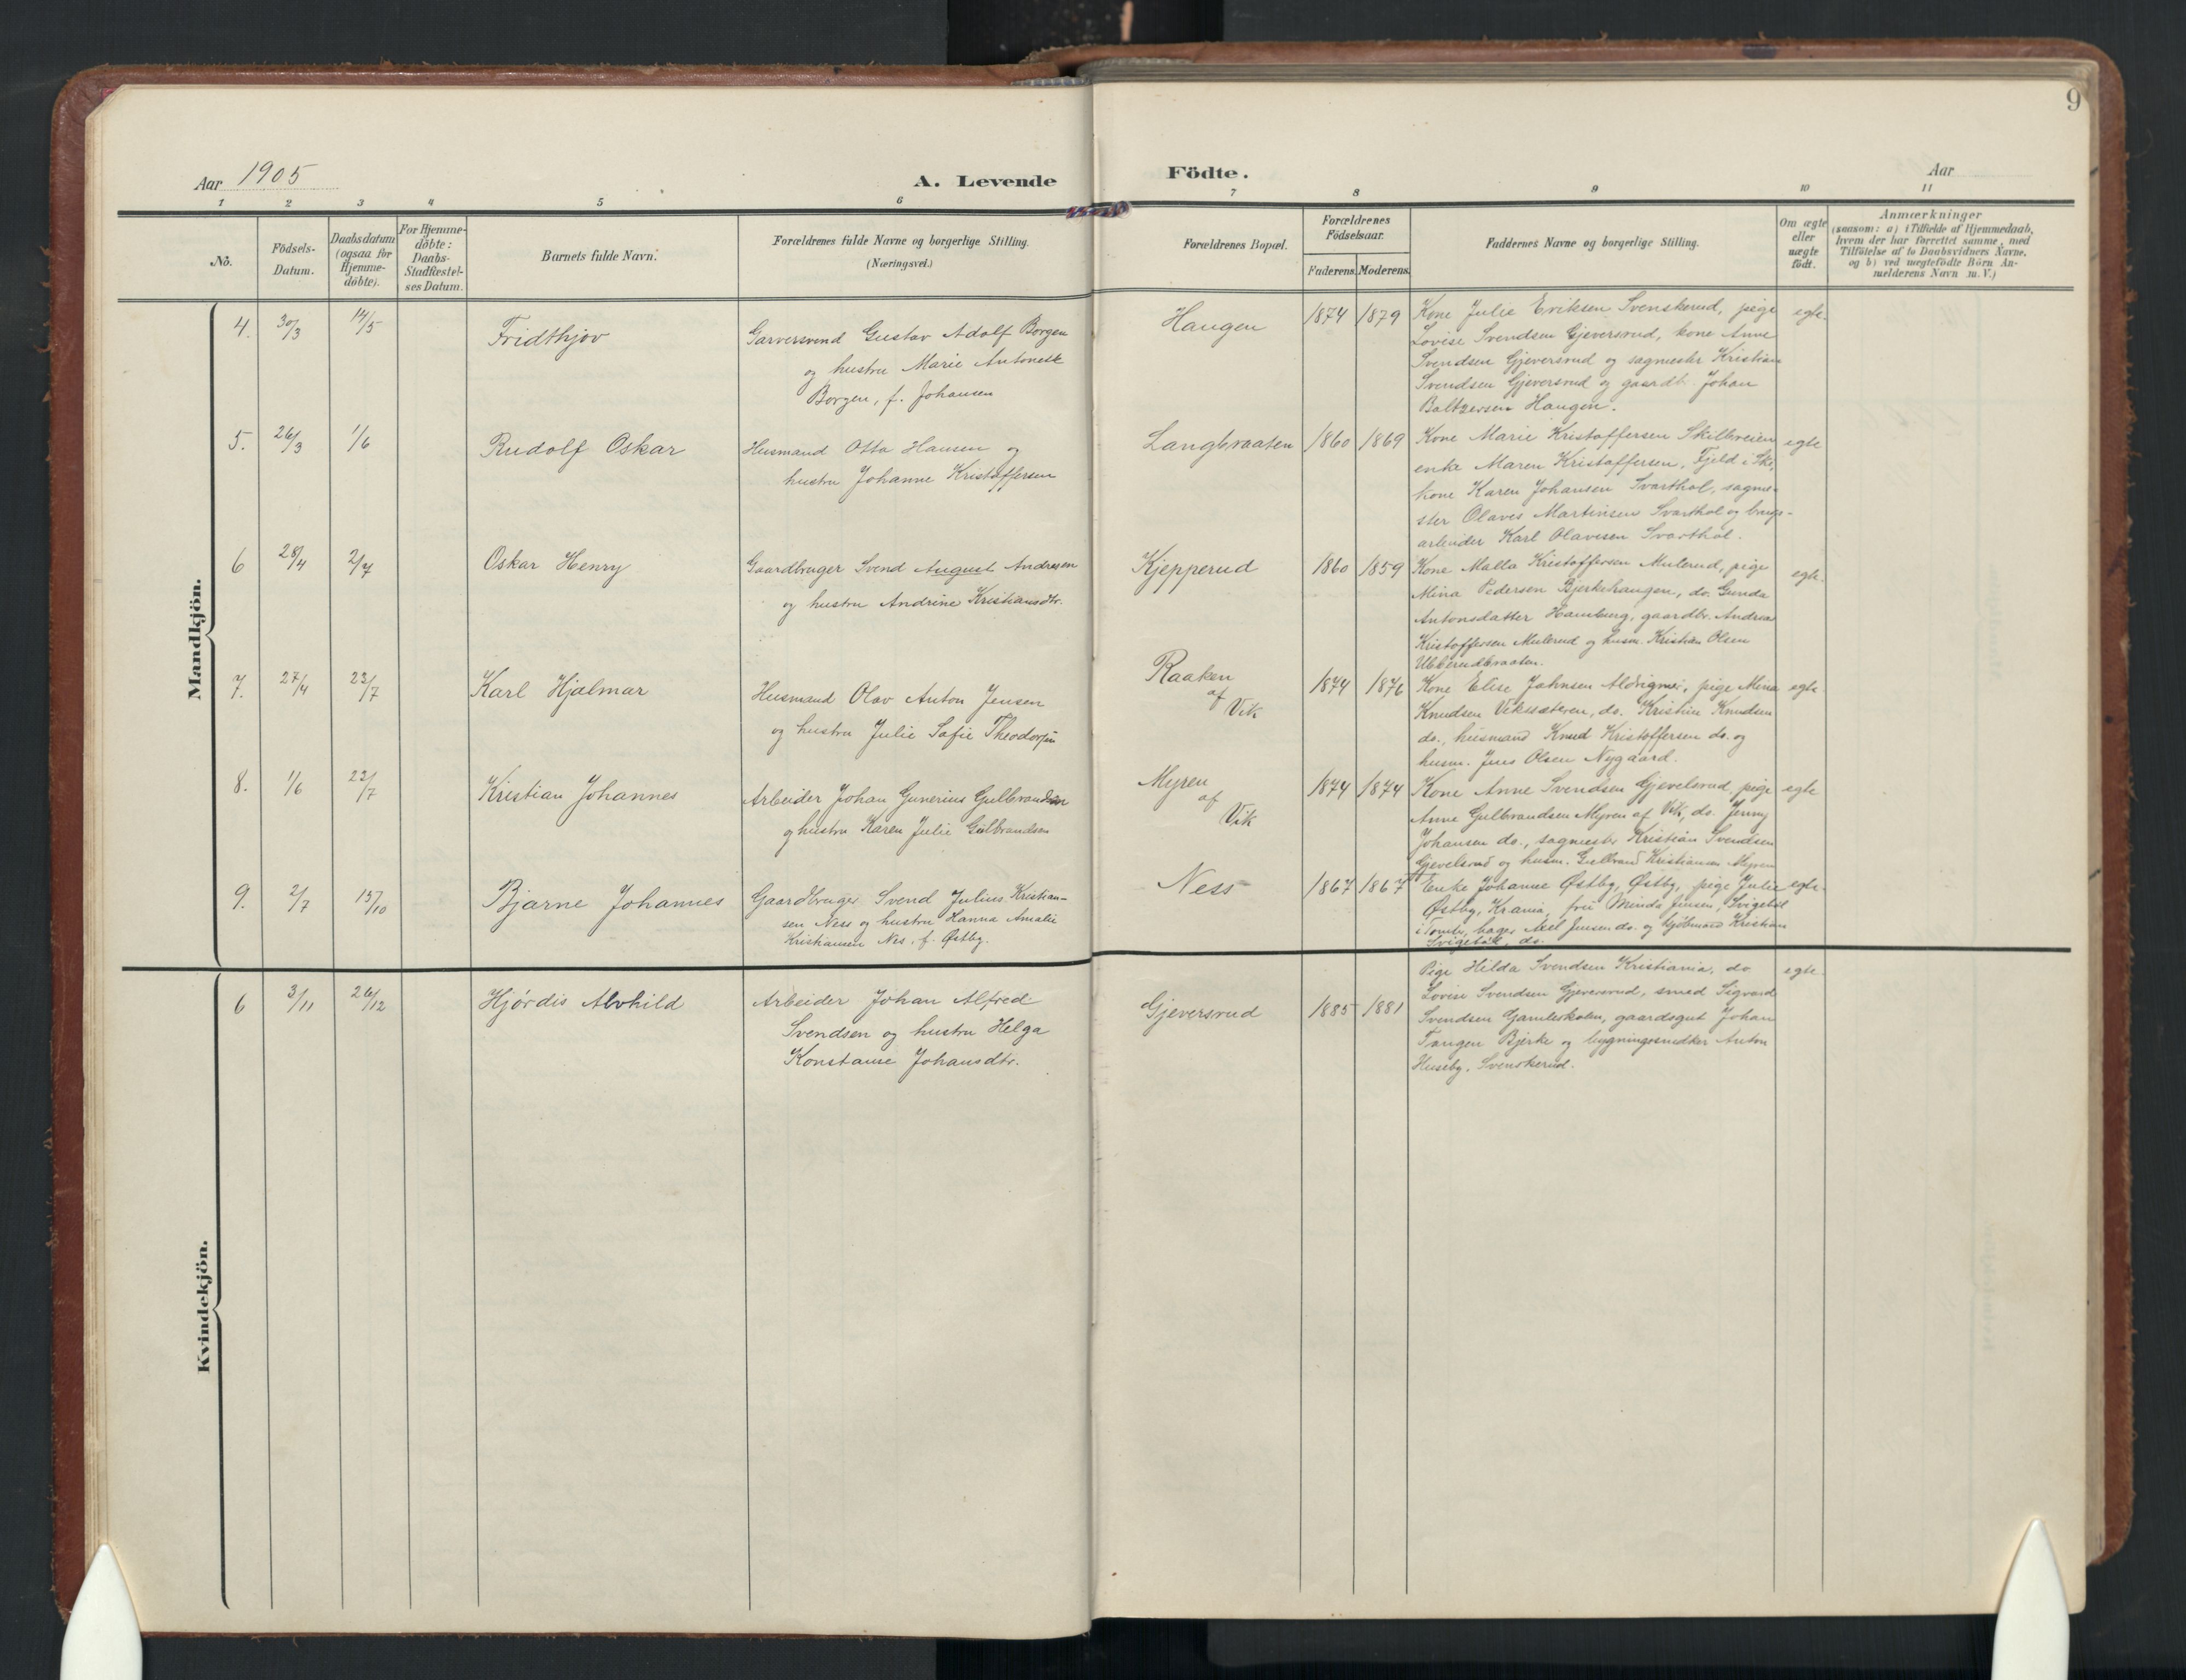 9
Aar 1905
A. Levende
Födte.
Aar
1 2 3 4 5 6 7 8 9 10 11
No.
Födsels-
Datum.
Daabsdatum
(ogsaa for
Hjemme-
döbte).
For Hjemme-
döbte:
Daabs-
Stadfæstel-
ses Datum.
Barnets fulde Navn.
Forældrenes fulde Navne og borgerlige Stilling.
(Næringsvei.)
Forældrenes Bopæl.
Forældrenes
Födselsaar.
Faderens. Moderens.
Faddernes Navne og borgerlige Stilling.
Om ægte
eller
uægte
födt.
Anmærkninger
(saasom: a) i Tilfælde af Hjemmedaab,
hvem der har forrettet samme, med
Tilföielse af to Daabsvidners Navne,
og b) ved uægtefödte Börn An-
melderens Navn m. V.)
Mandkjön.
4. 30/3 14/5
Fridthjov
Garversvend Gustav Adolf Borgen
og hustru Marie Antonette
Borgen, f. Johansen
Haugen
1874 1879
Kone Julie Eriksen Svenskerud, pige
Lovise Svendsen Gjeversrud, kone Anne
Svendsen Gjeversrud og sagmester Kristian
Svendsen Gjeversrud og gaardb. Johan
Baltzersen Haugen.
egte.
5. 26/3 1/6
Rudolf Oskar
Husmand Otto Hansen og
hustru Johanne Kristoffersen
Langbraaten
1860 1869
Kone Marie Kristoffersen Skilbreien
enke Maren Kristoffersen, Fjeld i Ski,
kone Karen Johansen Svarthol, sagme-
ster Olaves Martinsen Svarthol og brugs-
arbeider Karl Olavesen Svarthol.
egte
6 28/4 2/7
Oskar Henry
Gaardbruger Svend August Andresen
og hustru Andrine Kristiansdtr.
Kjepperud
1860 1859
Kone Malla Kristoffersen Mulerud, pige
Mina Pedersen Bjerkehaugen, do. Gunda
Antonsdatter Hamburg, gaardbr. Andreas
Kristoffersen Mulerud og husm. Kristian Olsen
Ubberudbraaten.
egte.
7. 27/4 23/7
Karl Hjalmar
Husmand Olav Anton Jensen
og hustru Julie Sofie Theodorsen
Raaken
af
Vik
1874 1876
Kone Elise Johnsen Aldrigmer, pige Mina
Knudsen Veksæteren, do. Kristine Knudsen
do., husmand Knud Kristoffersen do. og
husm. Jens Olsen Nygaard.
egte.
8. 1/6 23/7
Kristian Johannes
Arbeider Johan Gunerius Gulbrandsen
og hustru Karen Julie Gulbrandsen
Myren
af
Vik
1874 1874
Kone Anne Svendsen Gjevelsrud, pige
Anne Gulbrandsen Myren af Vik, do. Jenny
Johansen do., sagmester Kristian Svendsen
Gjevelsrud og husm. Gulbrand Kristiansen Myren
egte
9. 2/7 15/10
Bjarne Johannes
Gaardbruger Svend Julius Kristian-
sen Ness og hustru Hanna Amalie
Kristiansen Nes, f. Østby.
Ness
1867 1867
Enke Johanne Østby, Østby, pige Julie
Østby, Krania, fru Minda Jensen,
i bager Axel Jensen do. og Kristian
do.
egte.
Kvindekjön.
6 3/11 26/12
Hjørdis Alvhild
Arbeider Johan Alfred
Svendsen og hustru Helga
Konstanse Johansdtr.
Gjeversrud
1885 1881
Pige Hilda Svendsen Kristiania, do
Lovise Svendsen Gjeversrud, smed Sigvard
Svendsen Gamleskolen, gaardsgut Johan
Tangen Bjerke og bygningssnedker Anton
Huseby, Svenskerud.
egte.